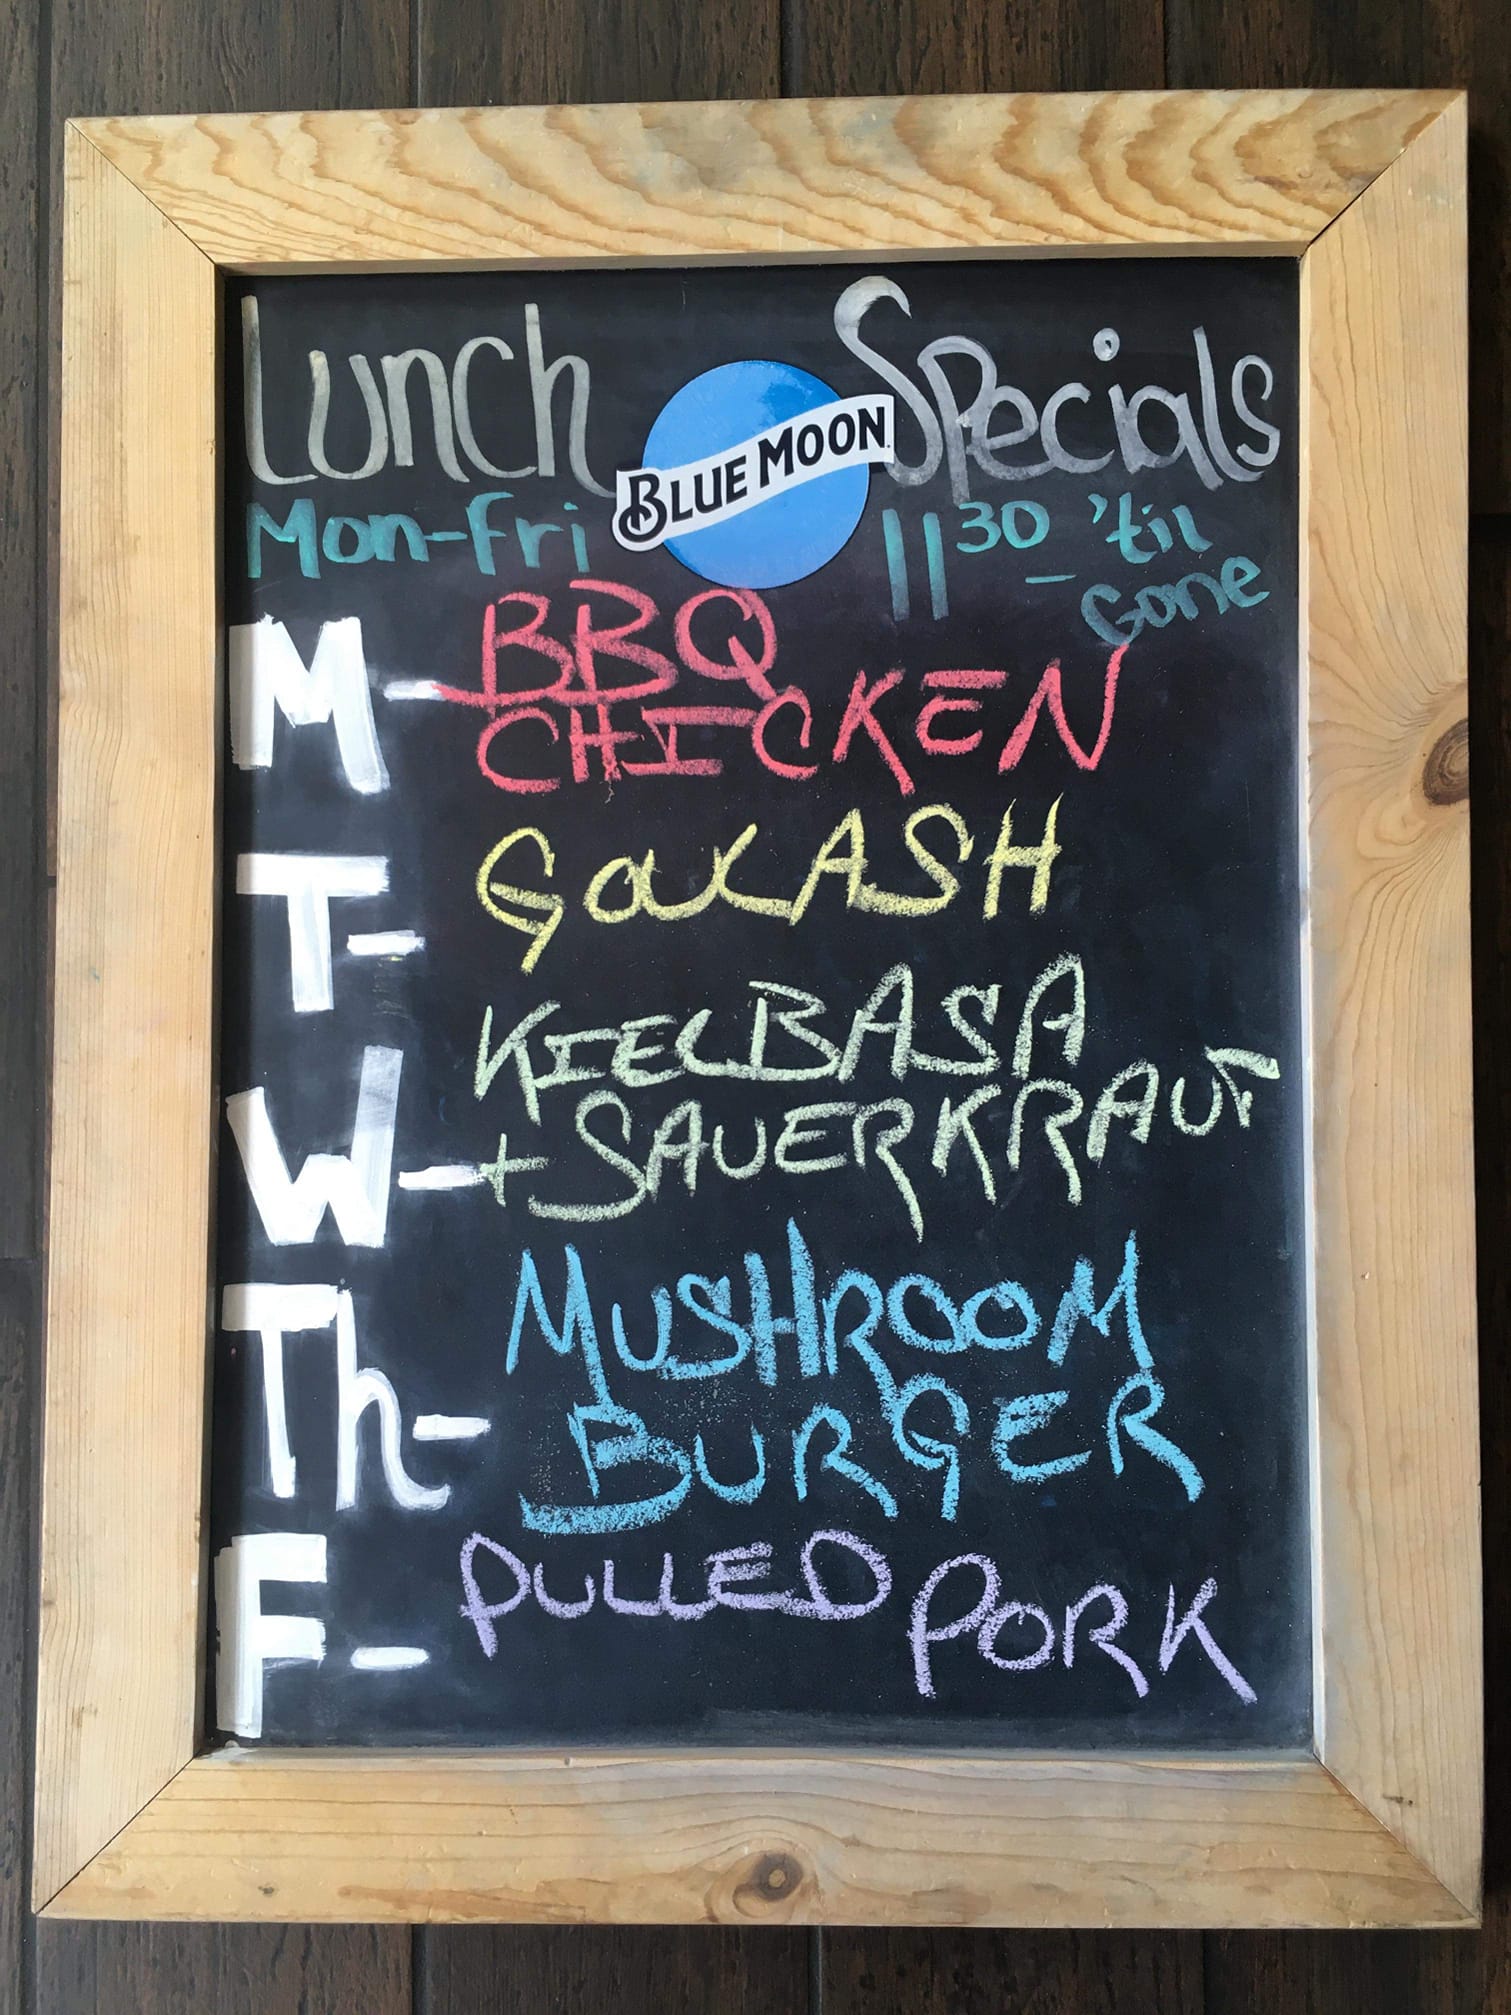 Lunch Specials
BLUE MOON
Mon-Fri 11 30 - 'til
Gone
M- BBQ
CHICKEN
T- GOULASH
KIELBASA
W- + SAUERKRAUT
MUSHROOM
Th- BURGER
F- PULLED PORK